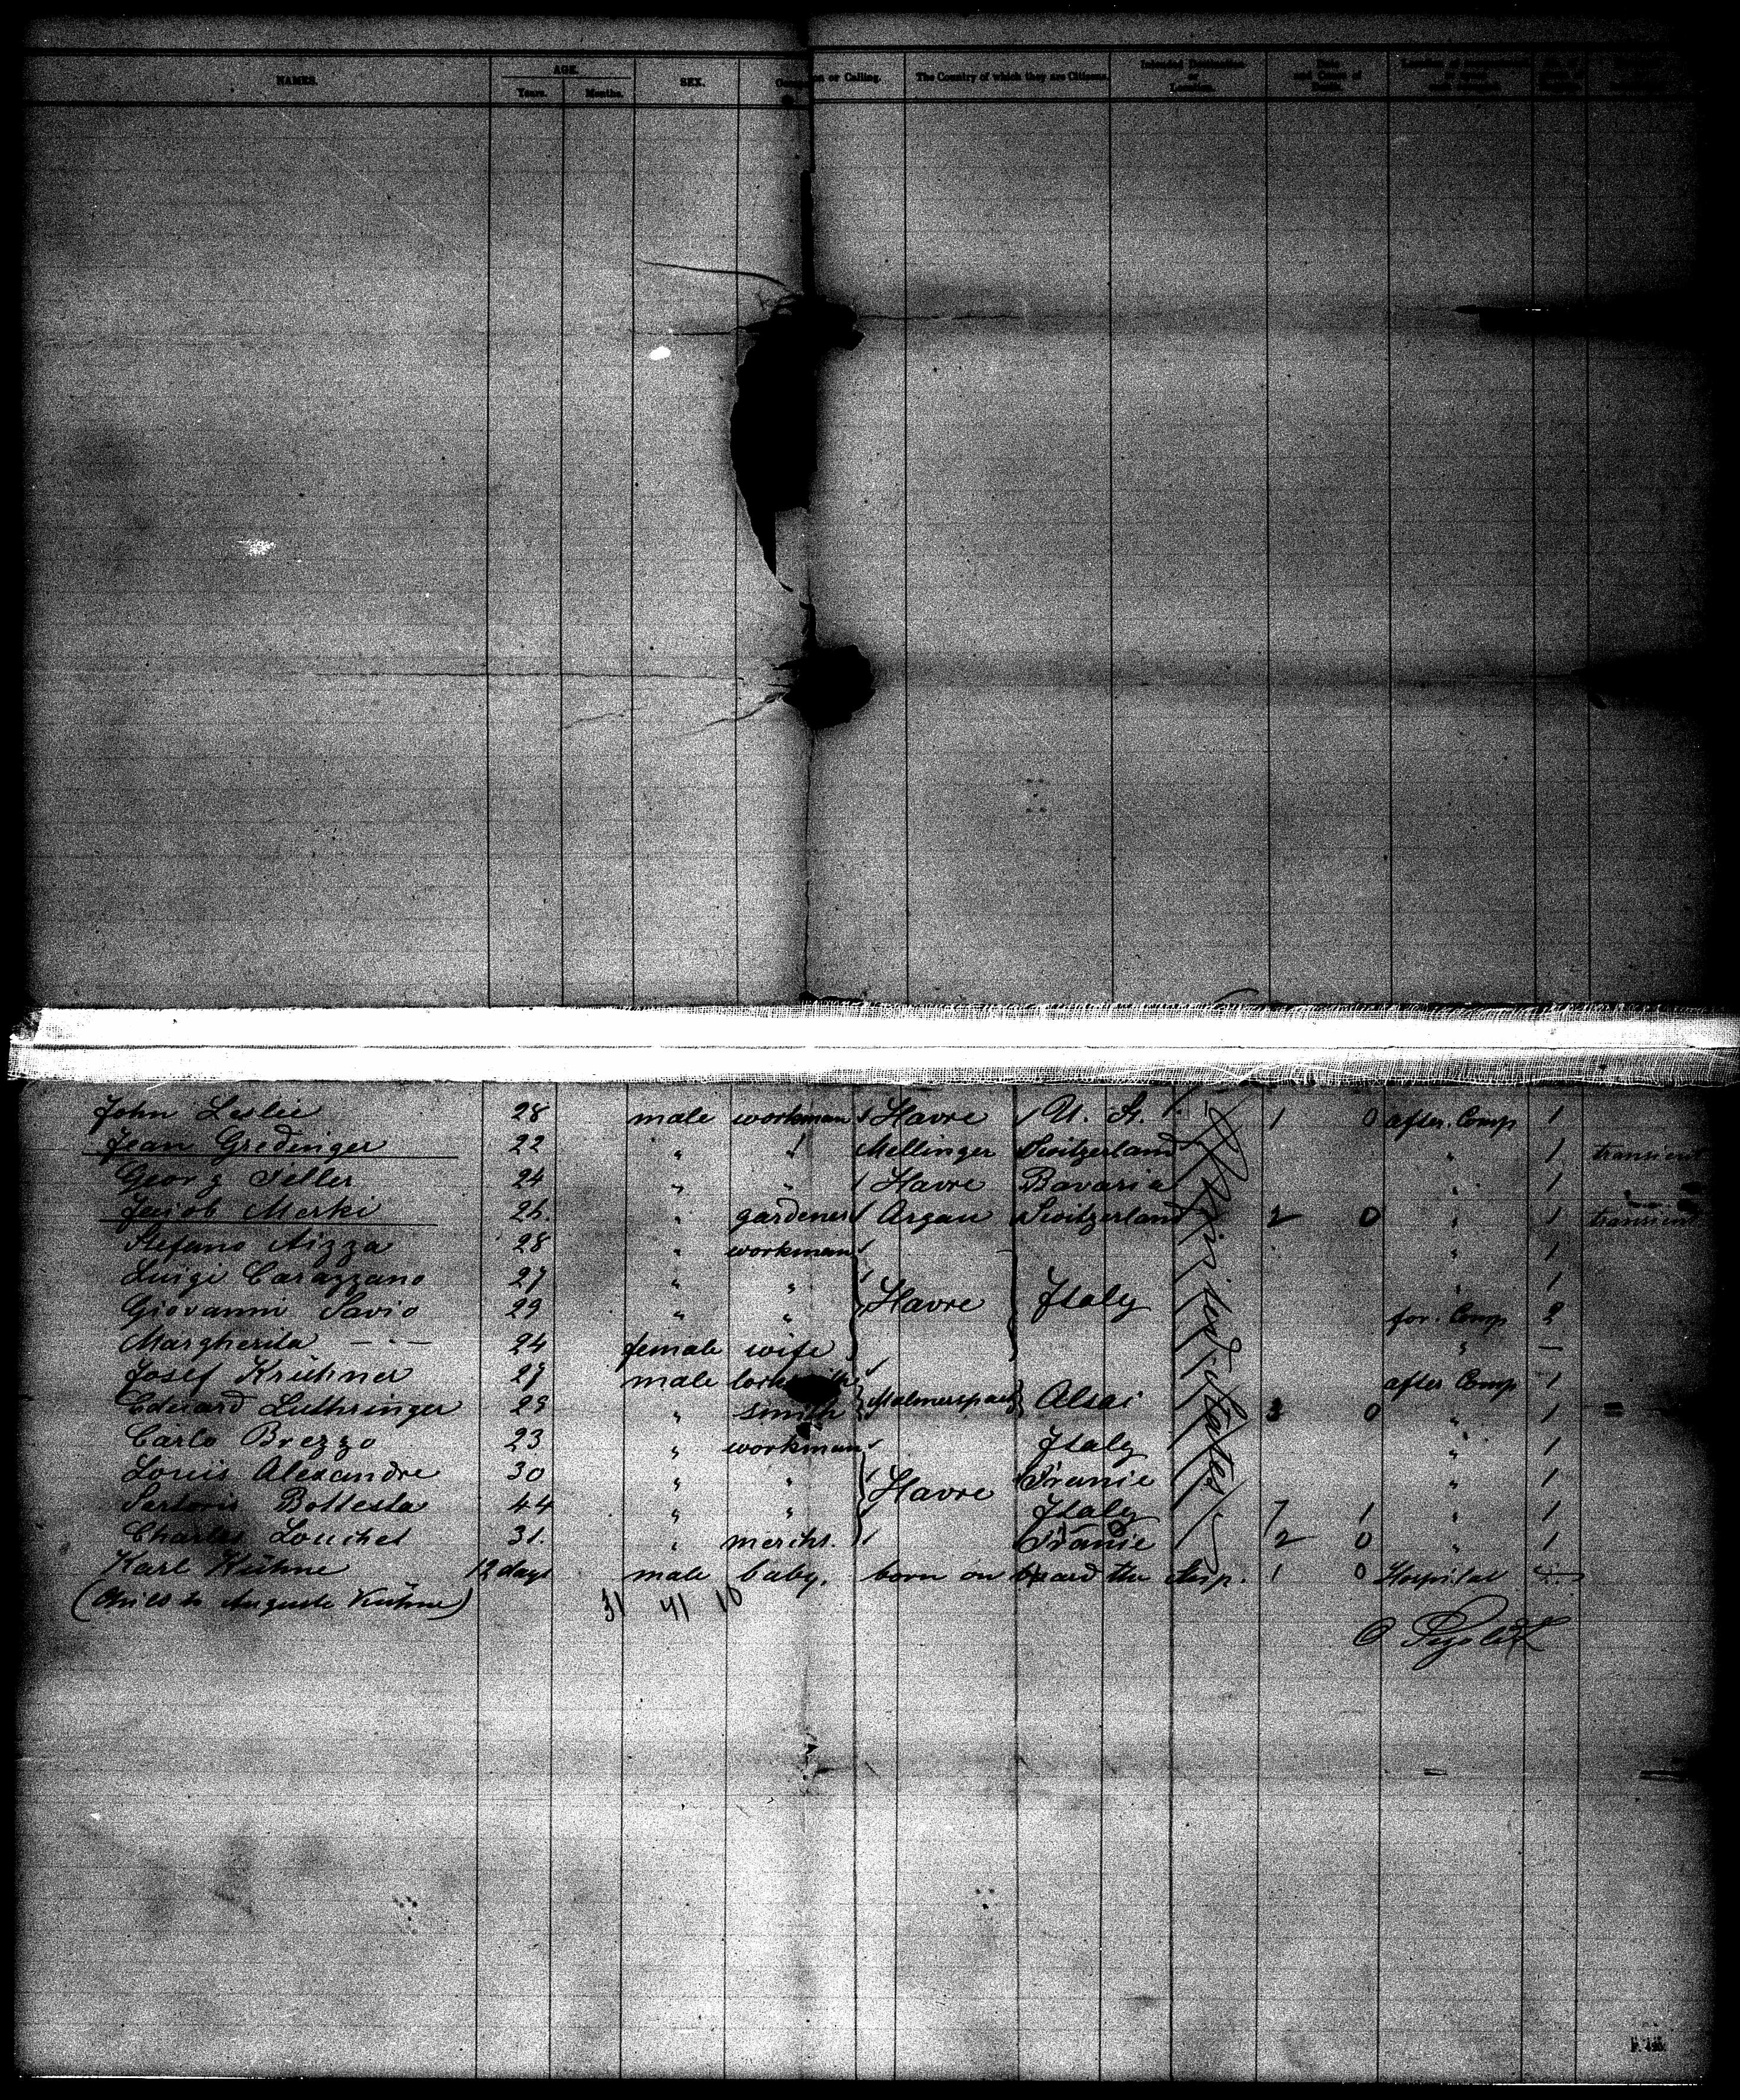 NAMES. AGE. Years. Months. SEX. Occupation or Calling. The Country of which they are Citizens. Intended Destination or Location. Date and Cause of Death.
John Leslie 28 male workman Havre U. St. 1 0 after. Comp 1
Jean Gredinger 22 " " Mellinger Switzerland " 1 transient
Georg Feller 24 " " Havre Bavaria " 1
Jacob Merki 26. " gardener Argau Switzerland 2 0 " 1 transient
Stefano Aizza 28 " workman " 1
Luigi Carazzano 27 " " " 1
Giovanni Savio 29 " " Havre Italy for. Comp 2
Margherita — " — 24 female wife " —
Josef 27 male after Comp 1
Eduard Luthringer 29 " smith Alsac 3 0 " 1
Carlo Brezzo 23 " workman Italy " 1
Louis Alexandre 30 " " Havre Francie " 1
Bottesta 44 " " Italy 7 1 " 1
Charles Louchet 31. " mercht. Francie 2 0 " 1
Karl Kühne 12 days male baby. born on board the ship. 1 0 Hospital
to Auguste Kühne) 31 41 10
United States